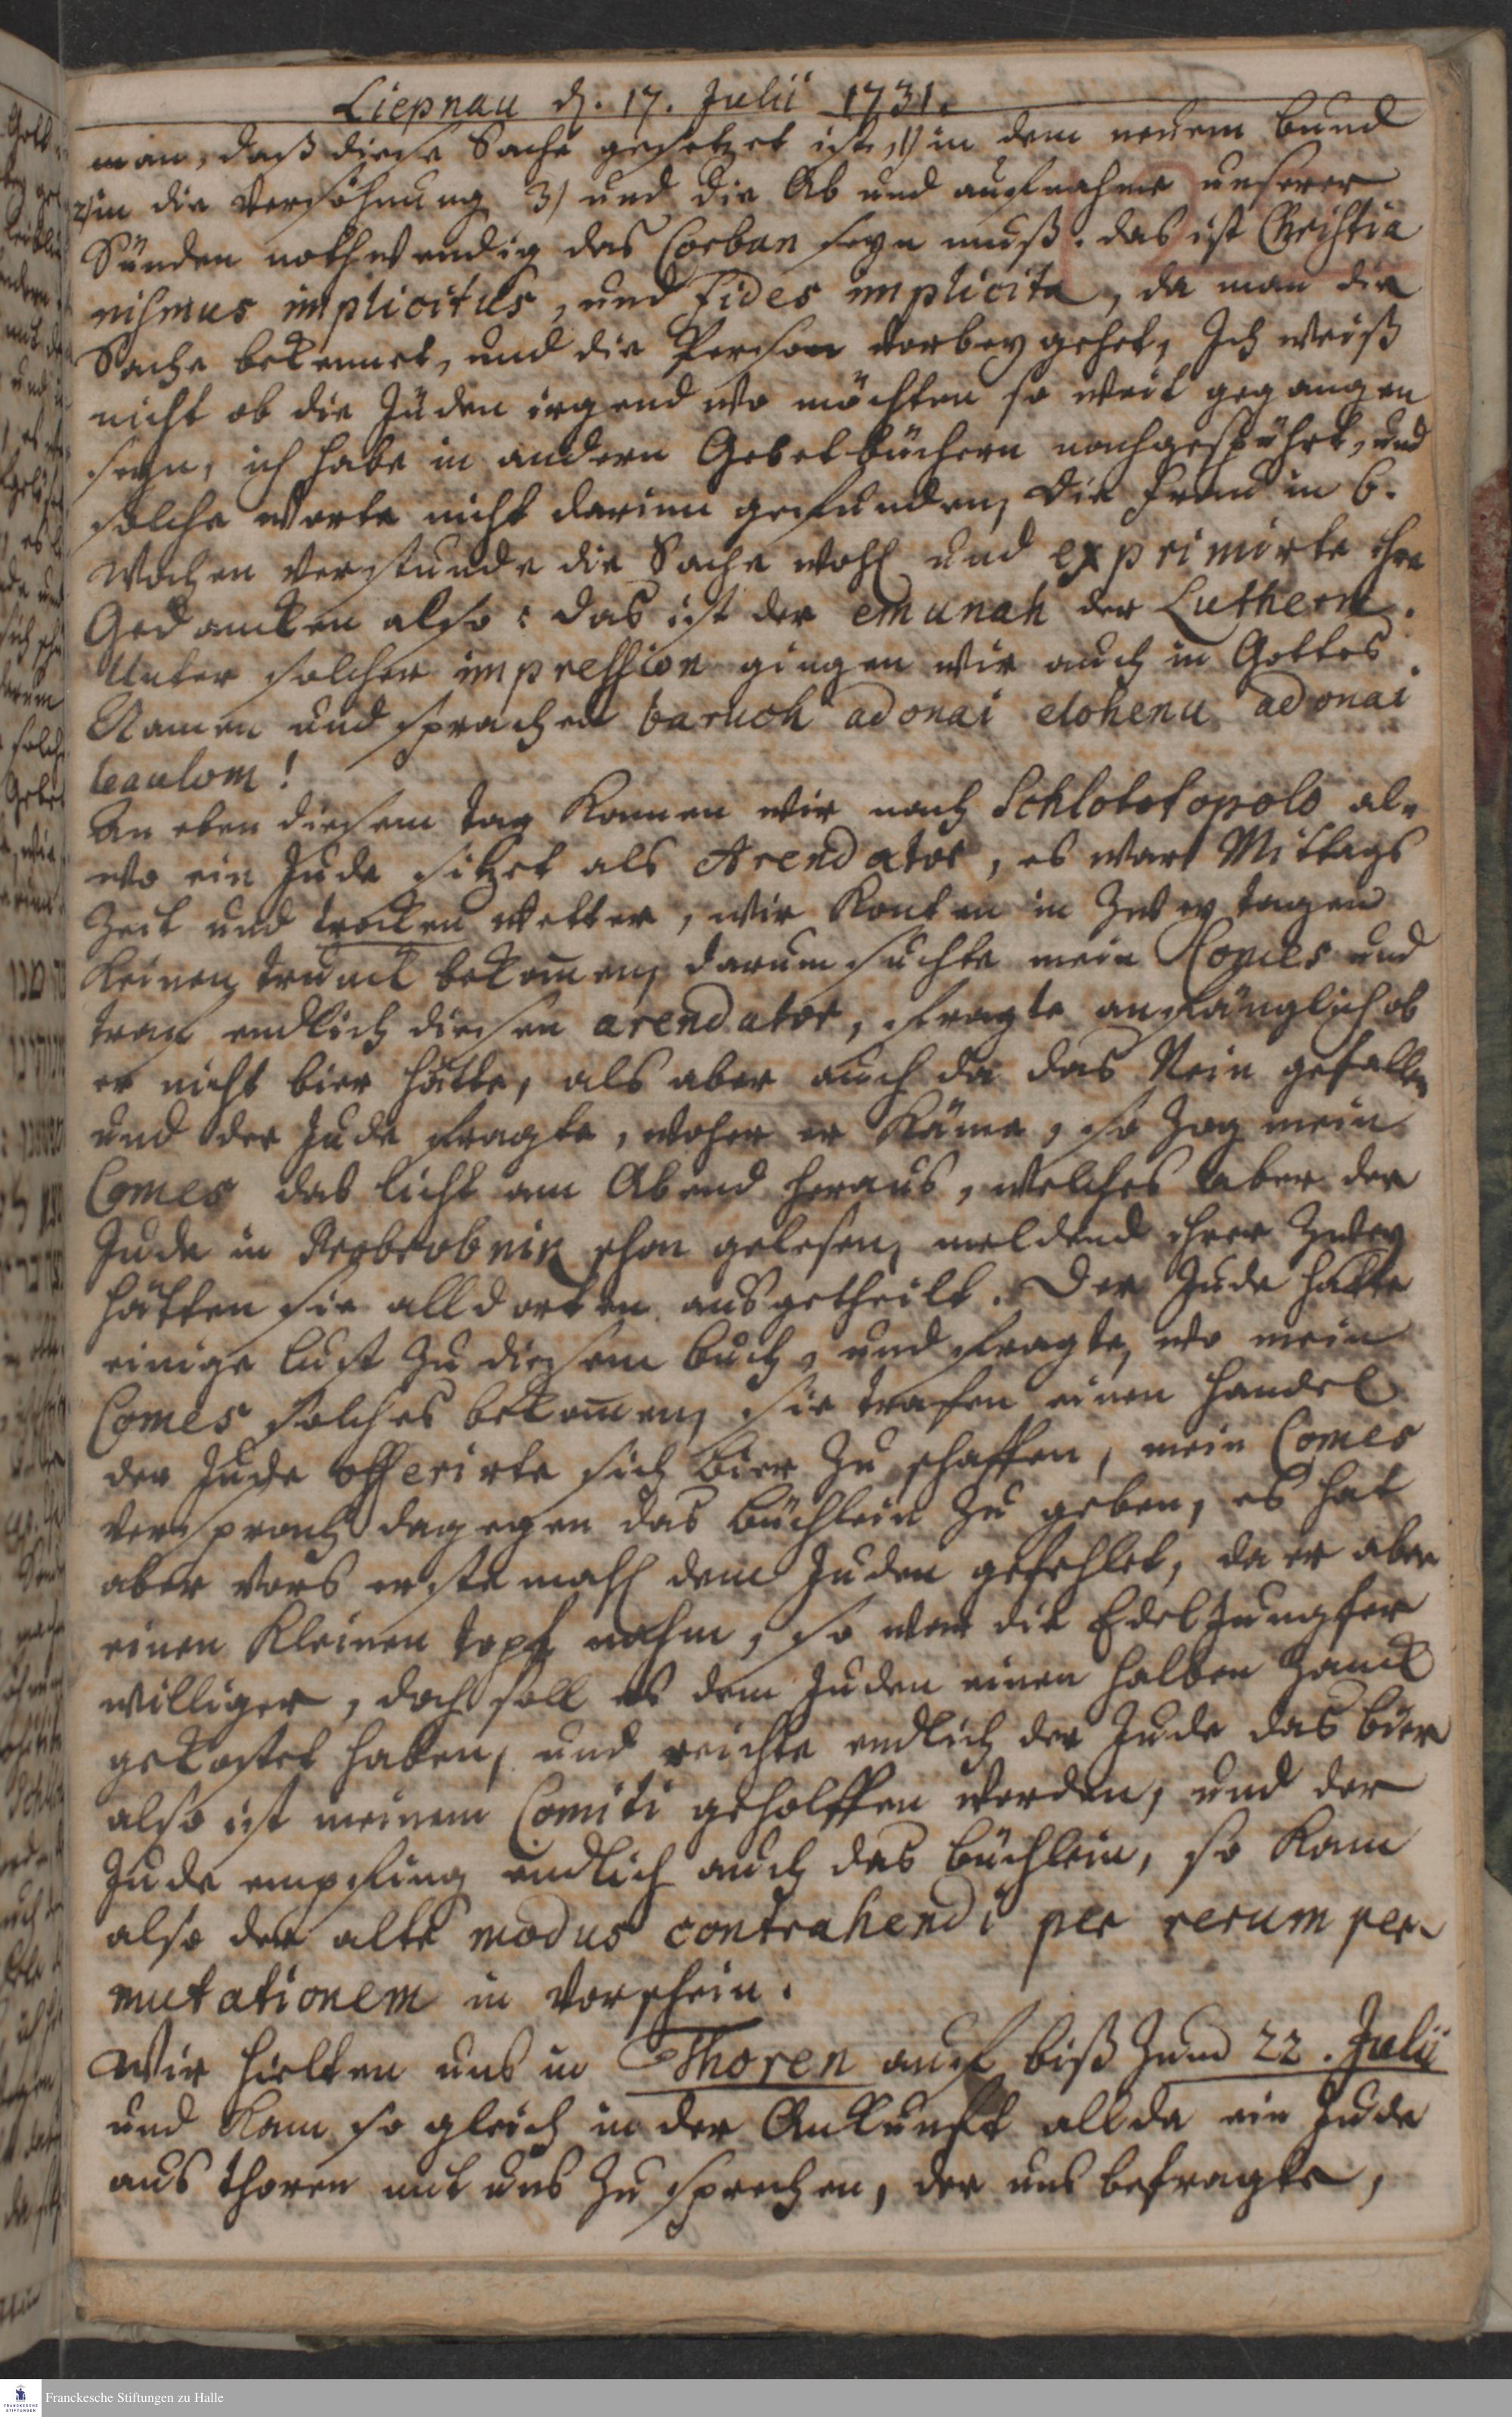 Liepnau d. 17. Julii 1731.
man, daß diese Sache gesetzet ist, 1) in dem neuem bund
2) in die Versöhnung 3) und die Ab und aufnahme unserer
Sünden nothwendig das Corban seyn muß. das ist Christia
nismus implicitus, und fides implicita, da man die
Sache bekennet, und die Person vorbey gehet, Ich weiß
nicht ob die Juden irgend wo möchten so weit gegangen
seyn, ich habe in andern Gebetbüchern nachgespühret, und
solche Worte nicht darinn gefunden, die in 6.
Wochen verstunde die Sache wohl und exprimirte ihre
Gedancken also: das ist der emunah der Luthern.
Unter solcher impression gingen wir auch in Gottes
Namen und sprachen baruch adonai elohenu adonai
leaulom!
An eben diesem tag kamen wir nach Schlotopolo al-
wo ein Jude sitzet als Arendator, es wart Mittags
Zeit und trocken Wetter, wir konten in Zwey tagen
keinen trunck bekom̄en, darum suchte mein Comes und
traf endlich diesen arendator, fragte anfänglich ob
er nicht bier hätte, als aber auch da das Nein gefallen
und der Jude fragte, woher er käme, so zog mein
Comes das licht am Abend heraus, welches aber der
Jude in schon gelesen, meldend ihrer Zwey
hätten sie alldorten ausgetheilt. Der Jude hatte
einige lust zu diesem buch, und fragte, wo mein
Comes solches bekom̄en, sie trafen einen handel
der Jude offerirte sich bier zu schaffen, mein Comes
versprach dagegen das büchlein zu geben, es hat
aber vors erste mahl dem Juden gefehlet, da er aber
einen kleinen topf nahm, so war die EdelJungfer
williger, doch soll es dem Juden einen halben Zanck
gekostet haben, und reichte endlich der Jude das bier
also ist meinem Comiti geholffen worden, und der
Jude empfing endlich auch das büchlein, so kam
also der alte modus contrahendi per rerum per-
mutationem in Vorschein.
Wir hielten uns in Thoren auf biß zum 22. Julii
und kam so gleich in der Ankunft allda ein Jude
aus thoren mit uns zu sprechen, der uns befragte,
Franckesche Stiftungen zu Halle